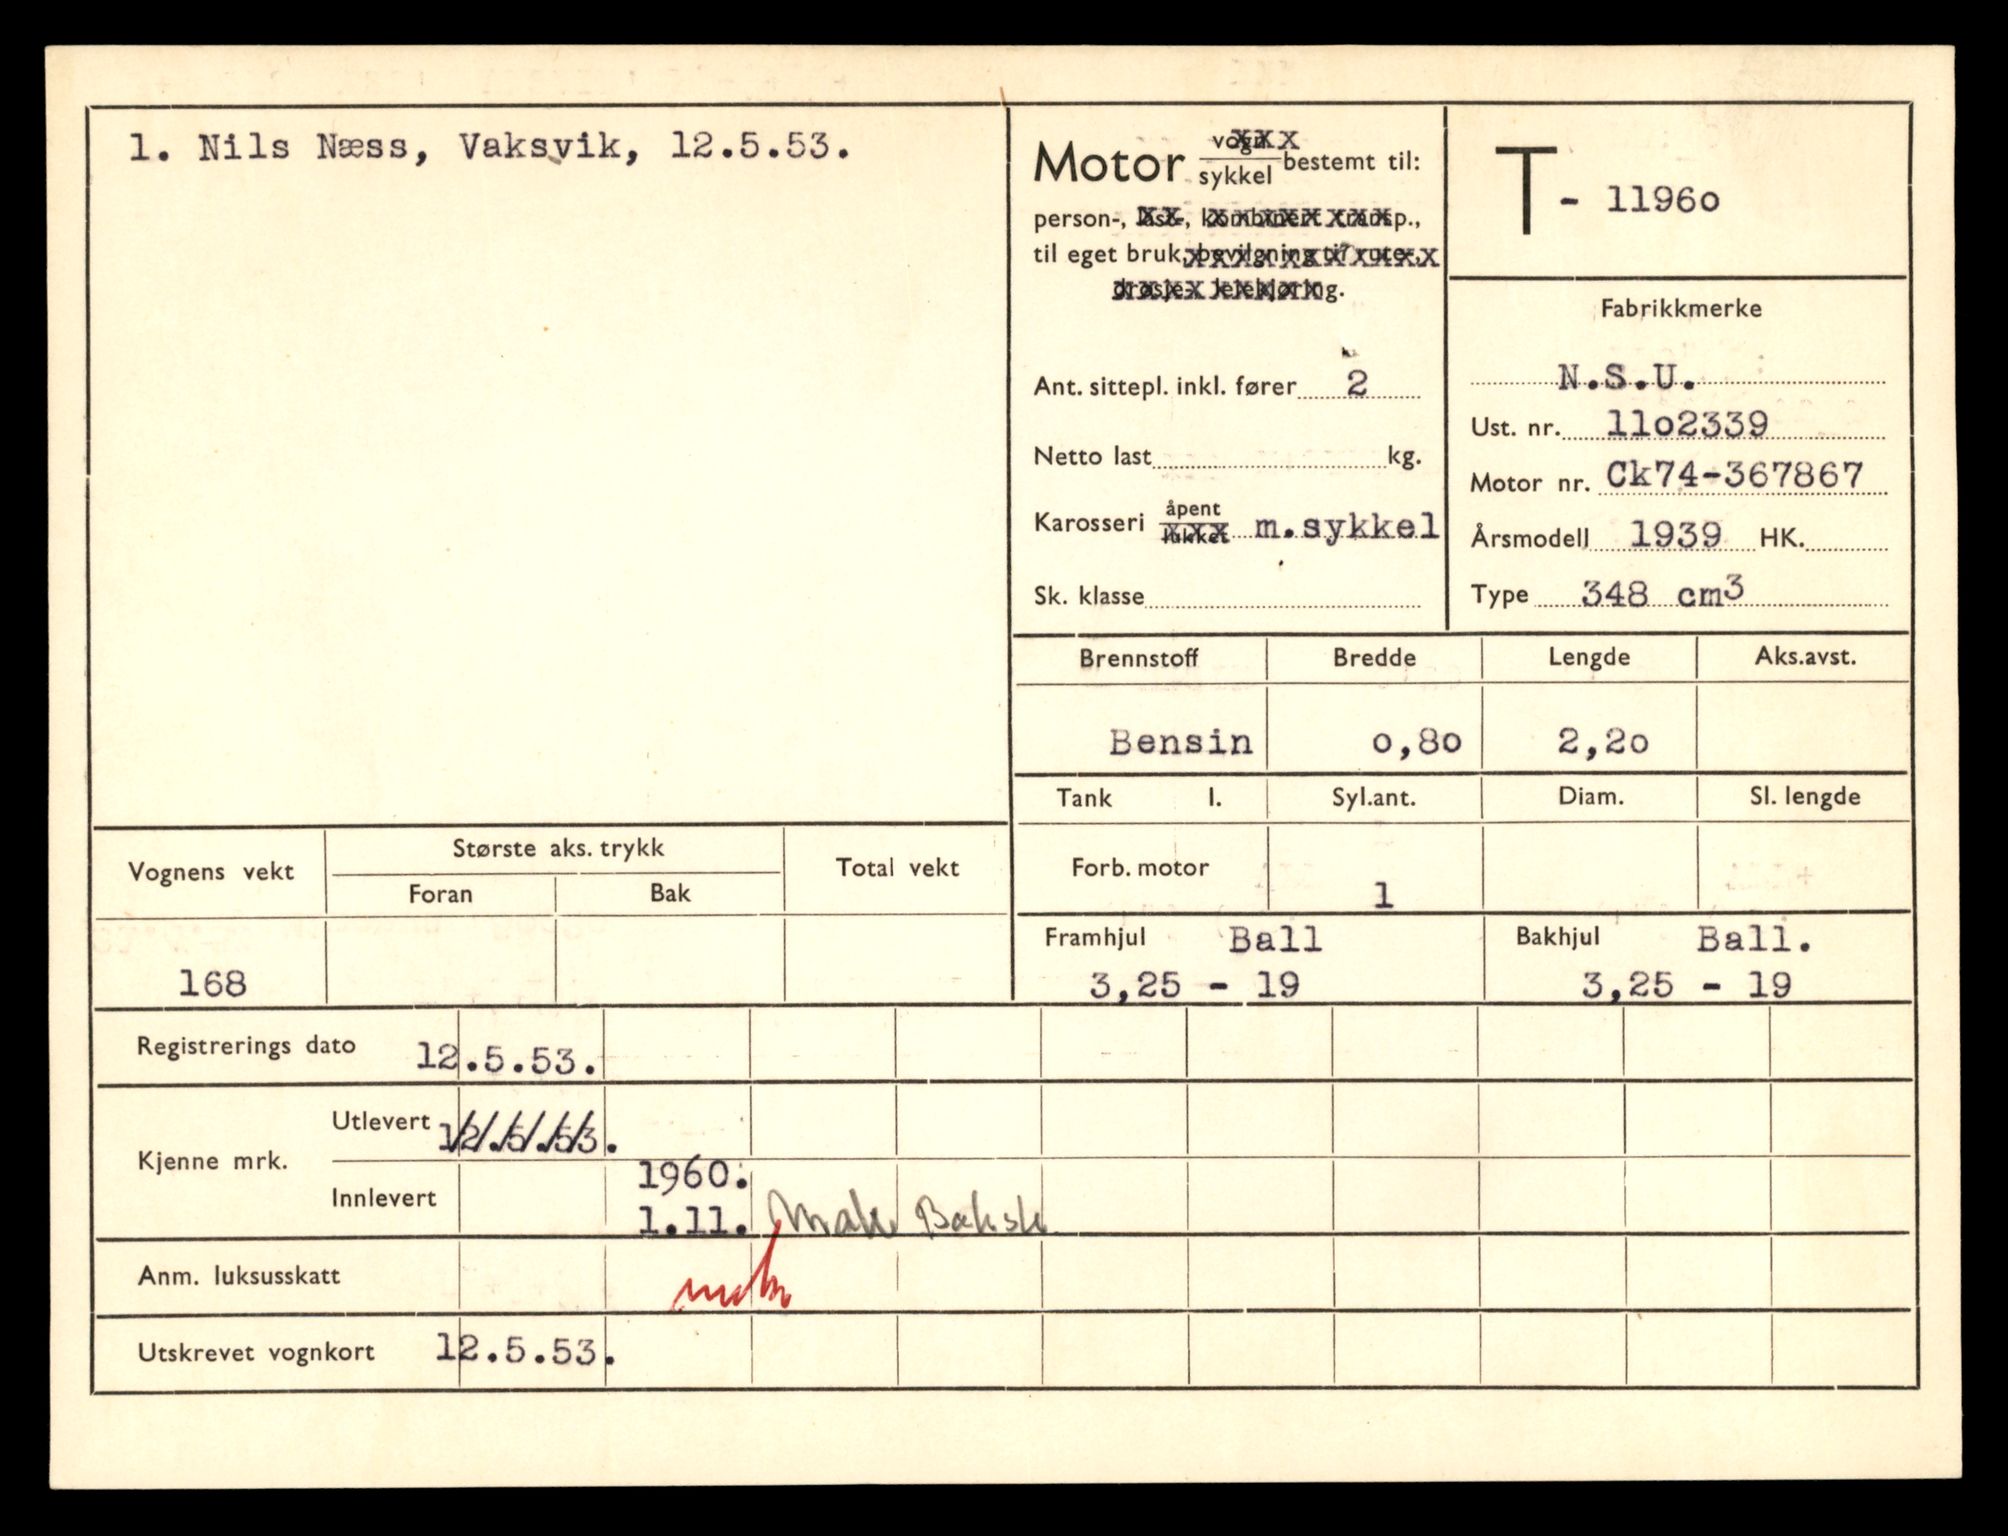 1. Nils Næss, Vaksvik, 12.5.53.
Motor vogn sykkel bestemt til:
person-, last-, kombinert transp.,
til eget bruk, bevilgning til rute-,
drosje- leiekjøring.
T - 1196o
Ant. sittepl. inkl. fører 2
Netto last kg.
Karosseri åpent lukket m.sykkel
Sk. klasse
Fabrikkmerke
N.S.U.
Ust. nr. 11o2339
Motor nr. Ck74-367867
Årsmodell 1939 HK.
Type 348 cm3
Brennstoff Bredde Lengde Aks.avst.
Bensin o,8o 2,2o
Tank l. Syl.ant. Diam. Sl. lengde
Forb. motor 1
Vognens vekt Største aks. trykk Total vekt
Foran Bak
168
Framhjul Ball Bakhjul Ball.
3,25 - 19 3,25 - 19
Registrerings dato 12.5.53.
Kjenne mrk. Utlevert 12.5.53.
1960.
Innlevert 1.11.
Anm. luksusskatt
Utskrevet vognkort 12.5.53.